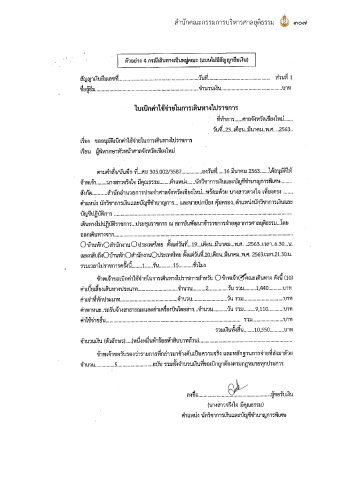 สำนักคณะกรรมการบริหารศาลยุติธรรม ๓๐๗
ตัวอย่าง 4 กรณีเดินทางเป็นหมู่คณะ (แบบไม่มีสัญญายืมเงิน)
สัญญาเงินยืมเลขที่..........วันที่.......... ส่วนที่ 1
ชื่อผู้ยืม..........จำนวนเงิน..........บาท
ใบเบิกค่าใช้จ่ายในการเดินทางไปราชการ
ที่ทำการ......ศาลจังหวัดเชียงใหม่......
วันที่..23..เดือน..มีนาคม..พ.ศ. ..2563..
เรื่อง ขออนุมัติเบิกค่าใช้จ่ายในการเดินทางไปราชการ
เรียน ผู้พิพากษาหัวหน้าศาลจังหวัดเชียงใหม่
ตามคำสั่ง/บันทึก ที่...ศย 303.002/3587..........ลงวันที่.....16 มีนาคม 2563......ได้อนุมัติให้
ข้าพเจ้า.......นางสาวจริงใจ มีคุณธรรม.......ตำแหน่ง.....นักวิชาการเงินและบัญชีชำนาญการพิเศษ......
สังกัด..........สำนักอำนวยการประจำศาลจังหวัดเชียงใหม่...พร้อมด้วย นางสาวดวงใจ
ตำแหน่ง นักวิชาการเงินและบัญชีชำนาญการ... และนายปกป้อง คุ้มครอง, ตำแหน่งนักวิชาการเงินและ
บัญชีปฏิบัติการ
เดินทางไปปฏิบัติราชการ...ประชุมราชการ ณ สถาบันพัฒนาข้าราชการฝ่ายตุลาการศาลยุติธรรม...โดย
ออกเดินทางจาก
บ้านพัก สำนักงาน ประเทศไทย ตั้งแต่วันที่..19...เดือน..มีนาคม..พ.ศ. ..2563..เวลา..6.30..น.
และกลับถึง บ้านพัก สำนักงาน ประเทศไทย ตั้งแต่วันที่.20.เดือน.มีนาคม.พ.ศ. 2563.เวลา.21.30.น.
รวมเวลาไปราชการครั้งนี้......1......วัน.......15..........ชั่วโมง
ข้าพเจ้าขอเบิกค่าใช้จ่ายในการเดินทางไปราชการสำหรับ ข้าพเจ้า คณะเดินทาง ดังนี้
ค่าเบี้ยเลี้ยงเดินทางประเภท..........จำนวน.......2.........วัน รวม......1,440......บาท
ค่าเช่าที่พักประเภท..........จำนวน..........วัน รวม..........บาท
ค่าพาหนะ..รถรับจ้างสาธารณะและค่าเครื่องบินโดยสาร ..จำนวน..........วัน รวม.......9,110.......บาท
ค่าใช้จ่ายอื่น..........รวม..........บาท
รวมทั้งสิ้น......10,550......บาท
จำนวนเงิน (ตัวอักษร)....(หนึ่งหมื่นห้าร้อยห้าสิบบาทถ้วน)..........
ข้าพเจ้าขอรับรองว่ารายการที่กล่าวมาข้างต้นเป็นความจริง และหลักฐานการจ่ายที่ส่งมาด้วย
จำนวน..........5..........ฉบับ รวมทั้งจำนวนเงินที่ขอเบิกถูกต้องตามกฎหมายทุกประการ
ลงชื่อ..........ผู้ขอรับเงิน
(นางสาวจริงใจ มีคุณธรรม)
ตำแหน่ง นักวิชาการเงินและบัญชีชำนาญการพิเศษ